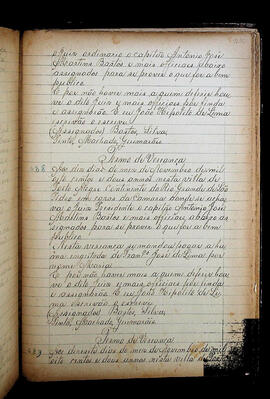 o Juiz ordinario o capitão Antonio José
Martins Bastos e mais officiaes abaixo
assignados para se prover o que for a bem
publico.
E por não haver mais a quem deferir hou-
ve o dito Juiz e mais officiaes por finda
e assignarão. E eu João Hipolito de Lima
escrivão o escrevi.
(Assignados) Bastos, Silva,
Pinto, Machado, Guimarães.
Termo de Vereança
488 Aos dias do mez de Novembro de mil
oito centos e dous annos nesta villa de
Porto Alegre Continente do Rio Grande de São
Pedro em caza da Camara donde se acha-
va o Juiz Presidente o capitão Antonio José
Martins Bastos e mais officiaes, abaixo as-
signados para se prover o que for a bem
publico.
Nesta vereança se mandou pagar a hu-
ma engeitada de Franco José de Lima, por
nome Maria.
E por não haver mais a quem deferir hou-
ve o dito Juiz e mais officiaes por finda
e assignarão. E eu João Hipolito de Li-
ma escrivão o escrevi.
(Assignados) Bastos, Silva,
Pinto, Machado, Guimarães.
Termo de Vereança
489 Aos dezeseis dias do mez de Novembro de mil
oito centos e dous annos nesta villa de Porto